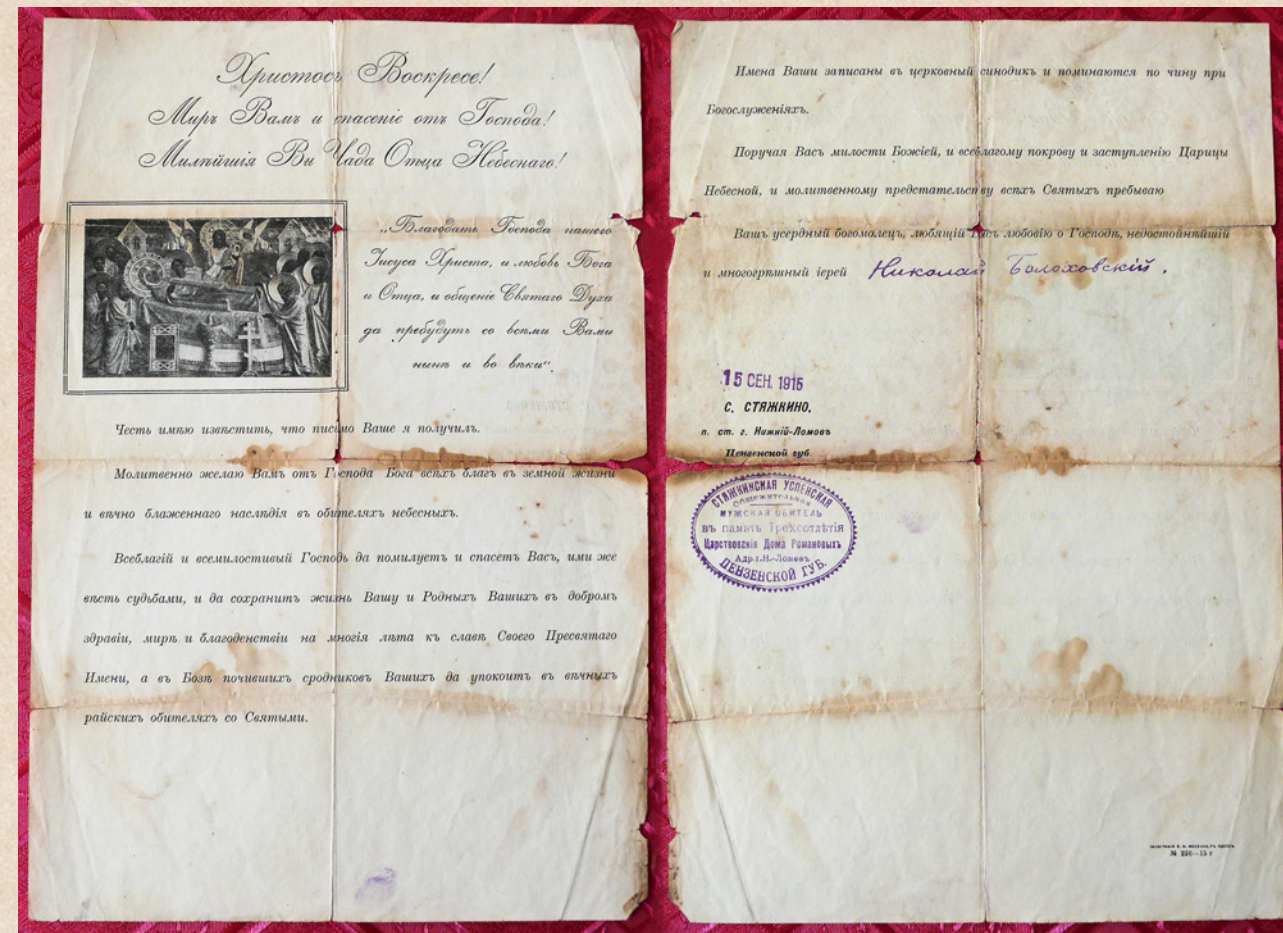 Христосъ Воскресе!
Миръ Вамъ и спасеніе отъ Господа!
Милѣйшія Ви Чада Отца Небеснаго!
„Благодать Господа нашего
Іисуса Христа, и любовь Бога
и Отца, и общеніе Святаго Духа
да пребудутъ со всѣми Вами
нынѣ и во вѣки“.
Честь имѣю извѣстить, что письмо Ваше я получилъ.
Молитвенно желаю Вамъ отъ Господа Бога всѣхъ благъ въ земной жизни
и вѣчно блаженнаго наслѣдія въ обителяхъ небесныхъ.
Всеблагій и всемилостивый Господь да помилуетъ и спасетъ Васъ, ими же
вѣсть судьбами, и да сохранитъ жизнь Вашу и Родныхъ Вашихъ въ добромъ
здравіи, мирѣ и благоденствіи на многія лѣта къ славѣ Своего Пресвятаго
Имени, а въ Бозѣ почившихъ сродниковъ Вашихъ да упокоитъ въ вѣчныхъ
райскихъ обителяхъ со Святыми.
Имена Ваши записаны въ церковный синодикъ и поминаются по чину при
Богослуженіяхъ.
Поручая Васъ милости Божіей, и всеблагому покрову и заступленію Царицы
Небесной, и молитвенному предстательству всѣхъ Святыхъ пребываю
Вашъ усердный богомолецъ, любящій Васъ любовію о Господѣ, недостойнѣйшій
и многогрѣшный іерей Николай Болоховскій.
15 СЕН. 1915
С. СТЯЖКИНО,
п. ст. г. Нижній-Ломовъ
Пензенской губ.
СТЯЖКИНСКАЯ УСПЕНСКАЯ
Общежительная
МУЖСКАЯ ОБИТЕЛЬ
въ память Трехсотлѣтія
Царствованія Дома Романовыхъ
Адр. г. Н.-Ломовъ
ПЕНЗЕНСКОЙ ГУБ.
№ 226—15 г